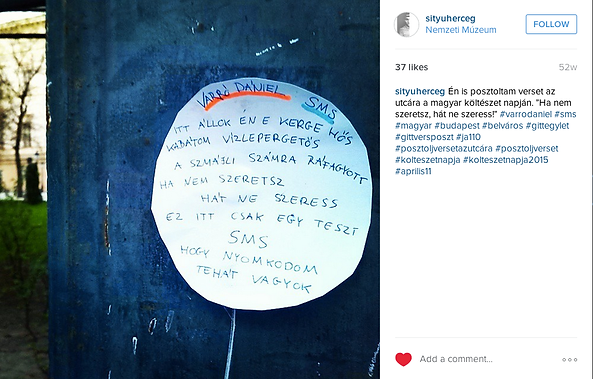 VARRÓ DÁNIEL SMS
ITT ÁLLOK ÉN E KERGE HŐS
KABÁTOM VÍZLEPERGETŐS
A SZMÁJLI SZÁMRA RÁFAGYOTT
HA NEM SZERETSZ
HÁT NE SZERESS
EZ ITT CSAK EGY TESZT
SMS
HOGY NYOMKODOM
TEHÁT VAGYOK
sityuherceg
Nemzeti Múzeum
FOLLOW
37 likes 52w
sityuherceg Én is posztoltam verset az
utcára a magyar költészet napján. "Ha nem
szeretsz, hát ne szeress!" #varrodaniel #sms
#magyar #budapest #belváros #gittegylet
#gittversposzt #ja110
#posztoljversetazutcára #posztoljverset
#kolteszetnapja #kolteszetnapja2015
#április11
Add a comment...